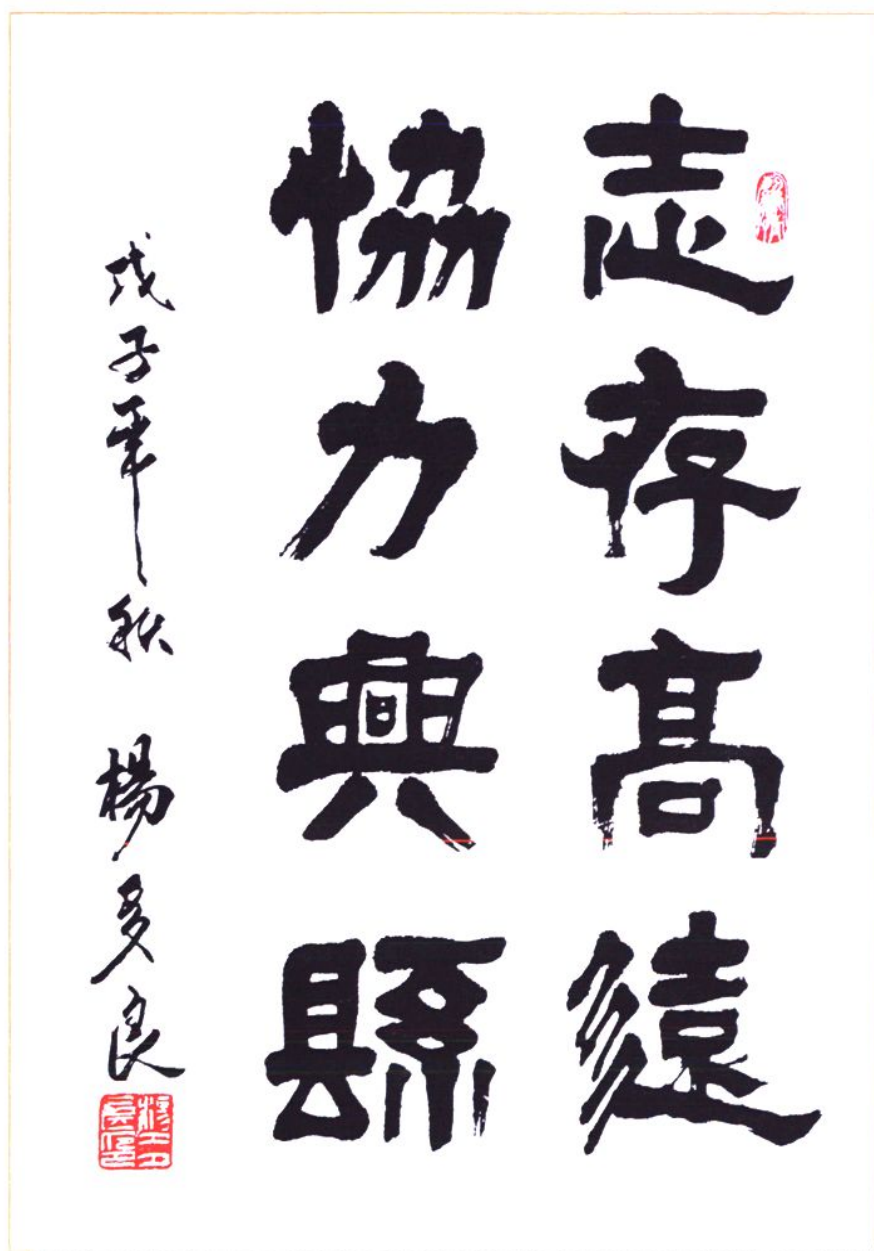 志存高遠
協力興縣
戊子年秋 楊多良